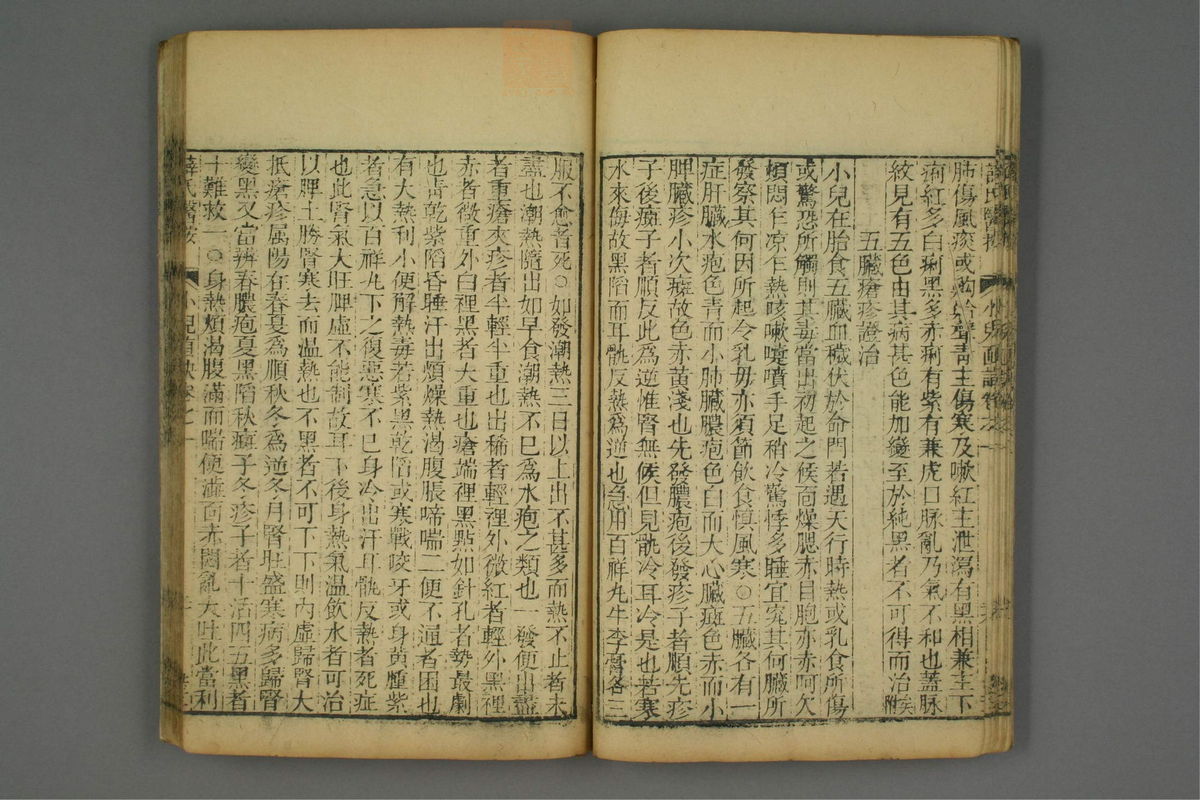 肺傷風痰或齁䶎聲青主傷寒及嗽紅主泄瀉有黑相兼主下
痢紅多白痢黑多赤痢有紫有兼虎口脉亂乃氣不和也蓋脉
紋見有五色由其病甚色能加變至於純黑者不可得而治候
五臟瘡疹證治
小兒在胎食五臟血穢伏於命門若遇天行時熱或乳食所傷
或驚恐所觸則其毒當出初起之候面燥腮赤目胞亦赤呵欠
煩悶乍凉乍熱咳嗽嚏噴手足稍冷驚悸多睡宜究其何臟所
發察其何因所起令乳母亦須節飲食慎風寒○五臟各有一
症肝臟水疱色青而小肺臟膿疱色白而大心臟斑色赤而小
脾臟疹小次斑故色赤黃淺也先發膿疱後發疹子者順先疹
子後斑子者順反此為逆惟腎無候但見骩冷耳冷是也若寒
水來侮故黑陷而耳骩反熱為逆也急用百祥丸牛李膏各三
服不愈者死○如發潮熱三日以上出不甚多而熱不止者未
盡也潮熱隨出如早食潮熱不已為水疱之類也一發便出盡
者重瘡夾疹者半輕半重也出稀者輕裡外微紅者輕外黑裡
赤者微重外白裡黑者大重也瘡端裡黑點如針孔者勢最劇
也青乾紫陷昏睡汗出煩燥熱渴腹脹啼喘二便不通者困也
有大熱利小便解熱毒若紫黑乾陷或寒戰咬牙或身黃腫紫
者急以百祥丸下之復惡寒不已身冷出汗耳骩反熱者死症
也此腎氣大旺脾虛不能制故耳下後身熱氣温飲水者可治
以脾土勝腎寒去而温熱也不黑者不可下下則內虛歸腎大
抵瘡疹属陽在春夏為順秋冬為逆冬月腎旺盛寒病多歸腎
變黑又當辨春膿疱夏黑陷秋斑子冬疹子者十活四五黑者
十難救一○身熱煩渴腹滿而喘便澁面赤悶亂大吐此當利
薛氏醫按 小兒直訣卷之一